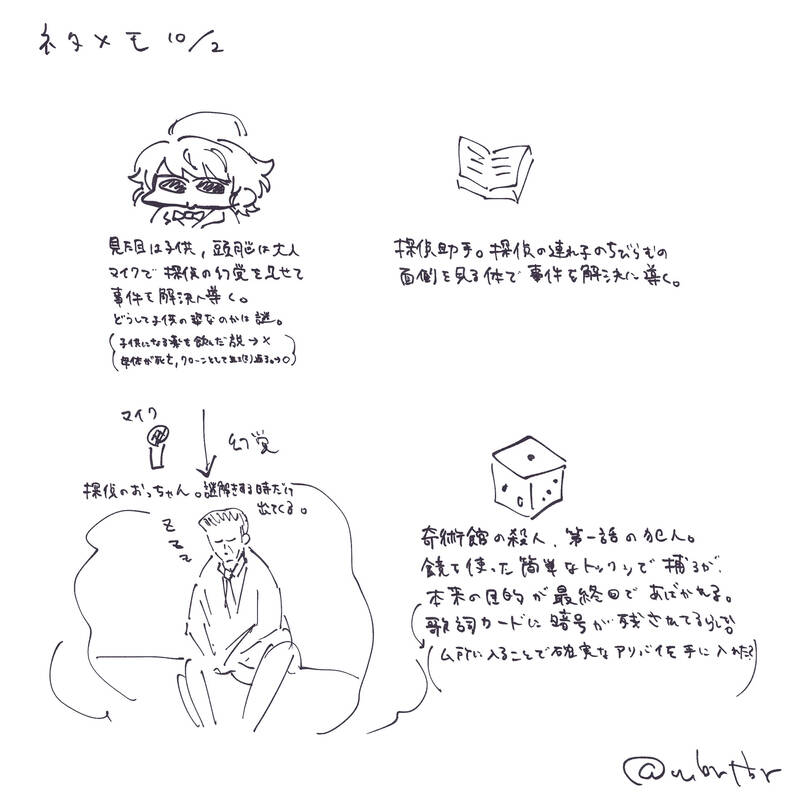 ネタメモ 10/2
見た目は子供、頭脳は大人
マイクで探偵の幻覚を見せて
事件を解決へ導く。
どうして子供の姿なのかは謎。
(子供になる薬を飲んだ説→×
が死亡,クローンとして
探偵助手。探偵の連れ子のちびっ
面倒を見る体で事件を解決に導く。
マイク
幻覚
探偵のおっちゃん。謎解きする時だけ
出てくる。
z z z
奇術館の殺人、第一話の犯人。
鏡を使った簡単なトリックで捕るが、
本来の目的が最終回であばかれる。
歌詞カードに暗号が残されてるらしい。
(ム所に入ることで確実なアリバイを手に入れた?)